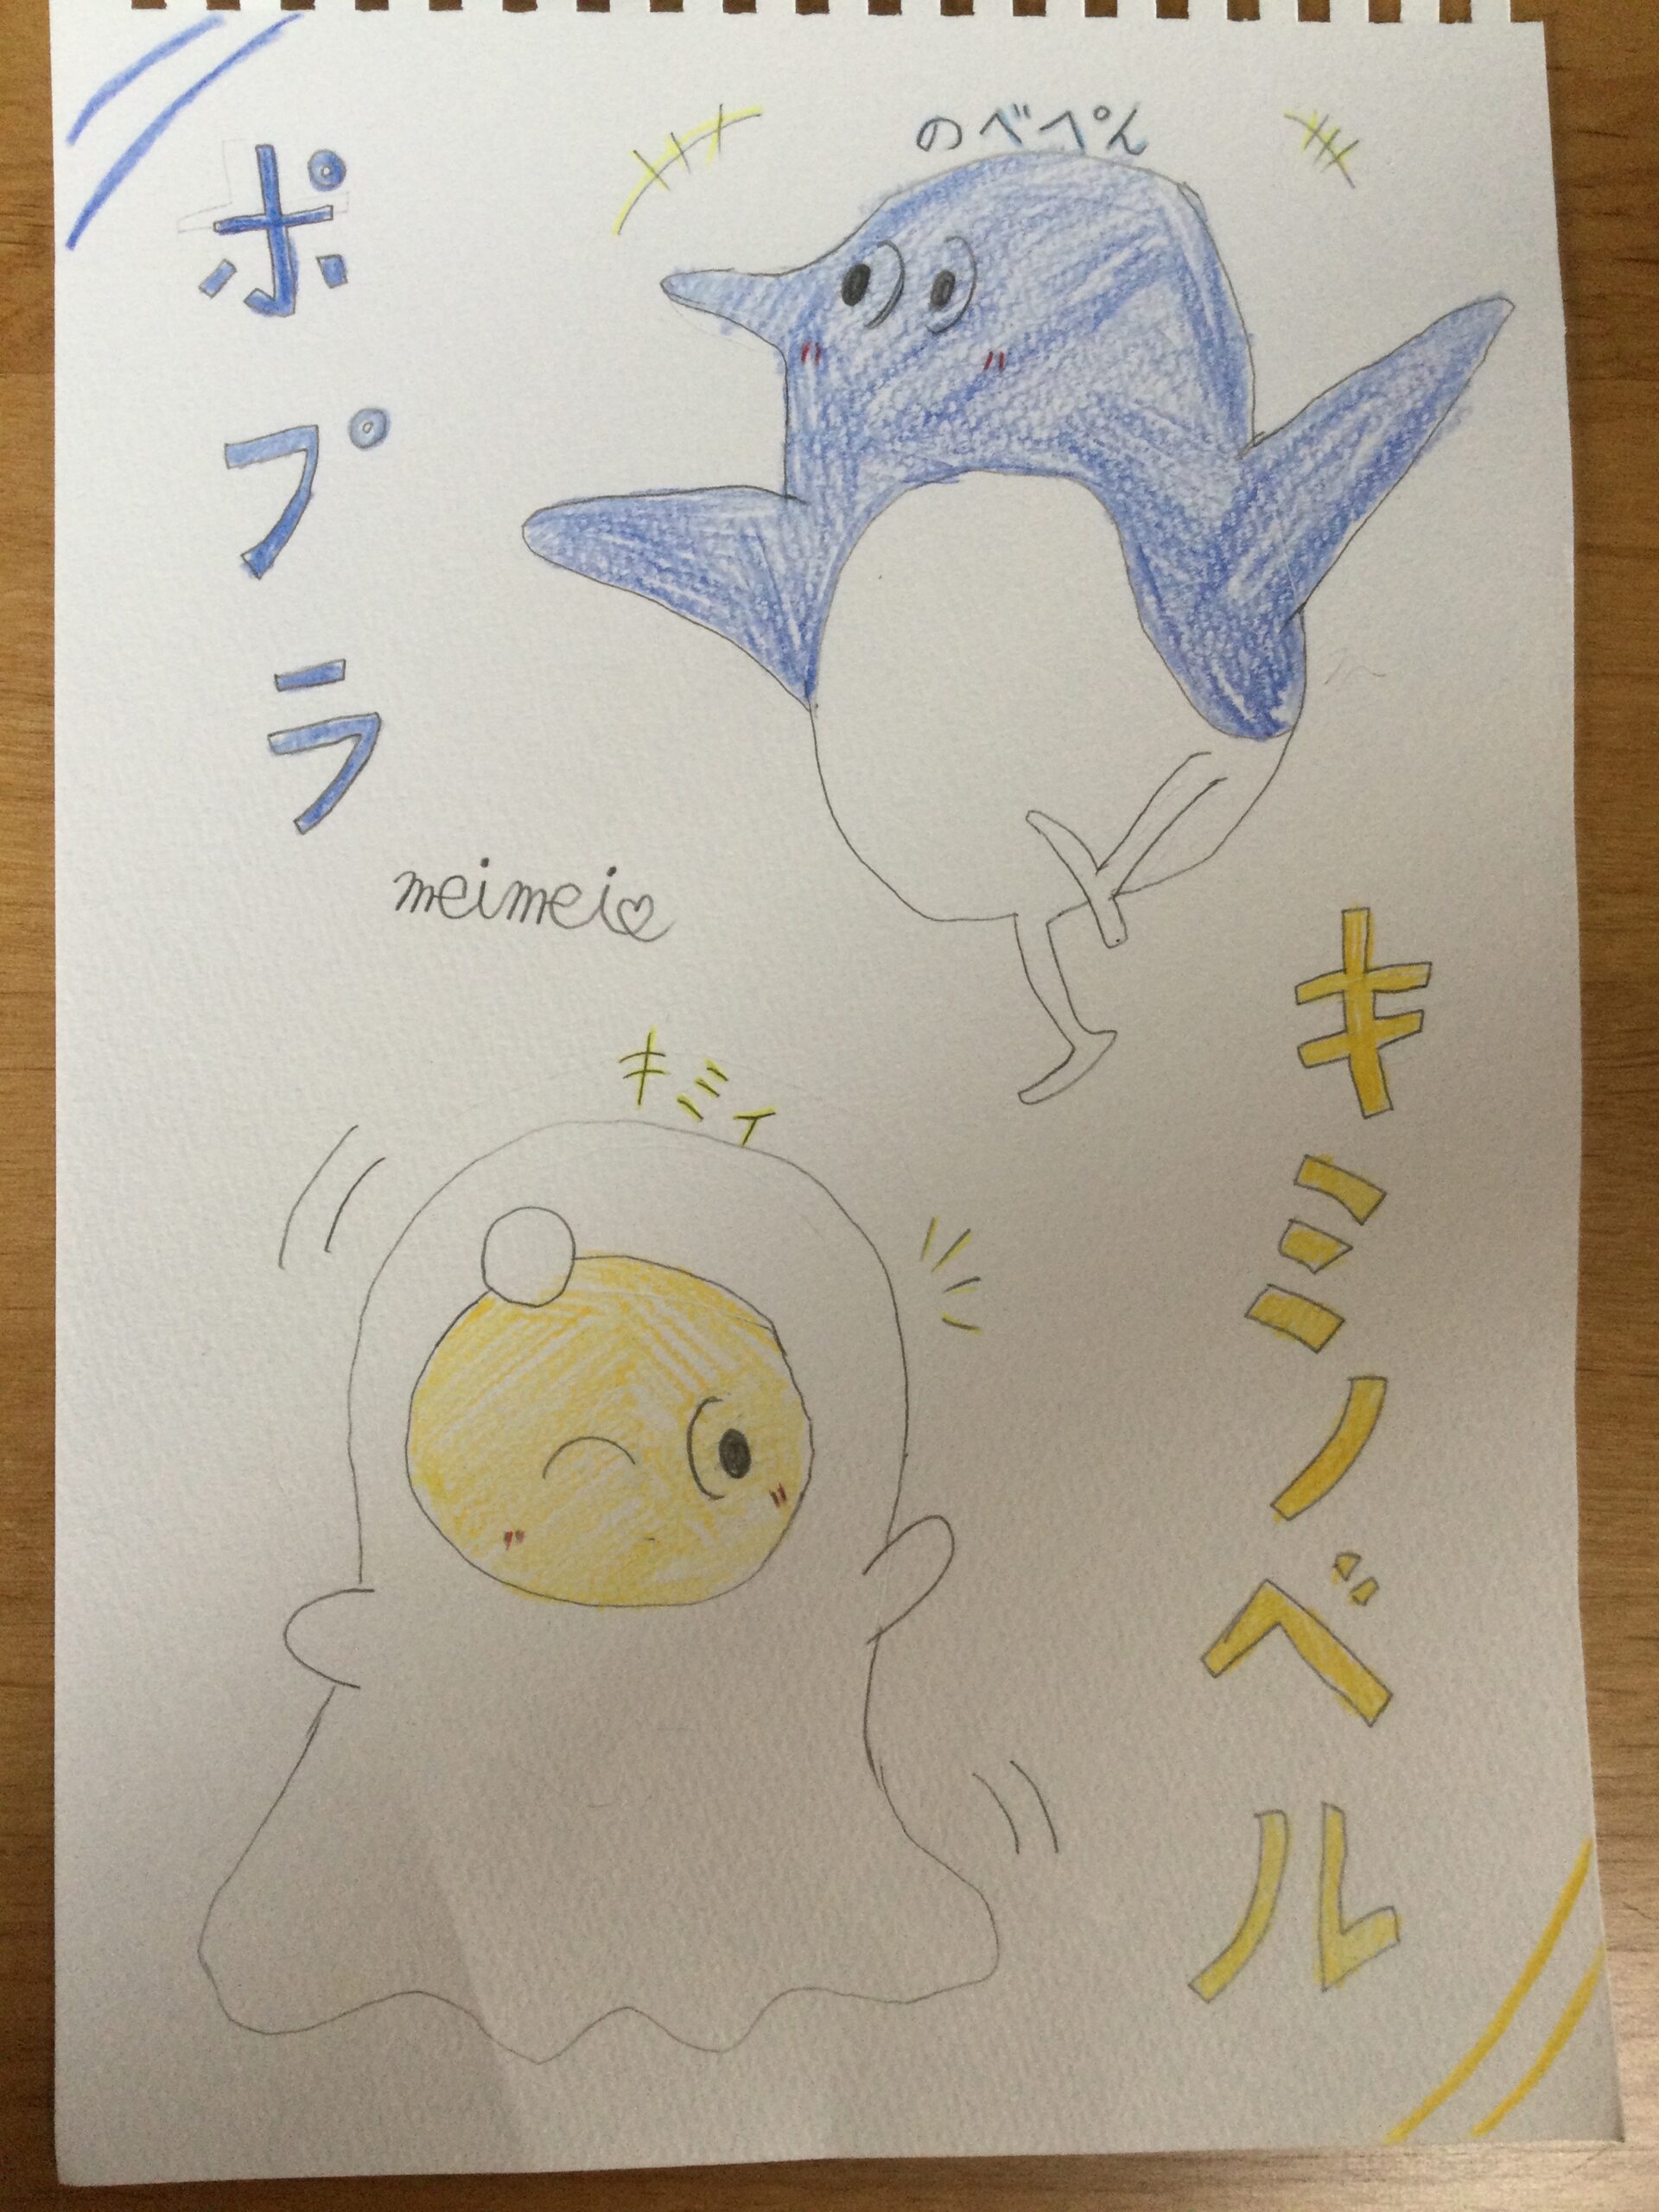 ポプラ
のべぺん
meimei♡
キミィ
キミノベル